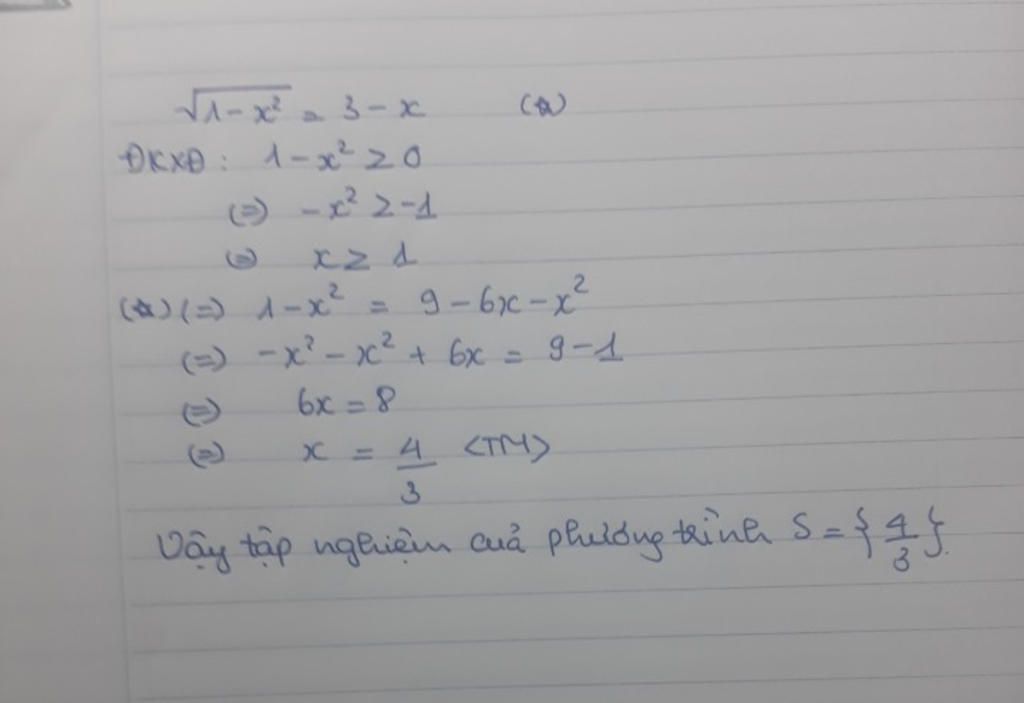 √1-x² = 3-x (☆)
ĐKXĐ: 1-x² ≥ 0
(=) -x² ≥ -1
(=) x ≥ 1
(☆) (=) 1-x² = 9-6x-x²
(=) -x² - x² + 6x = 9-1
(=) 6x = 8
(=) x = 4/3 <TM>
Vậy tập nghiệm cuả phương trình S = {4/3}.